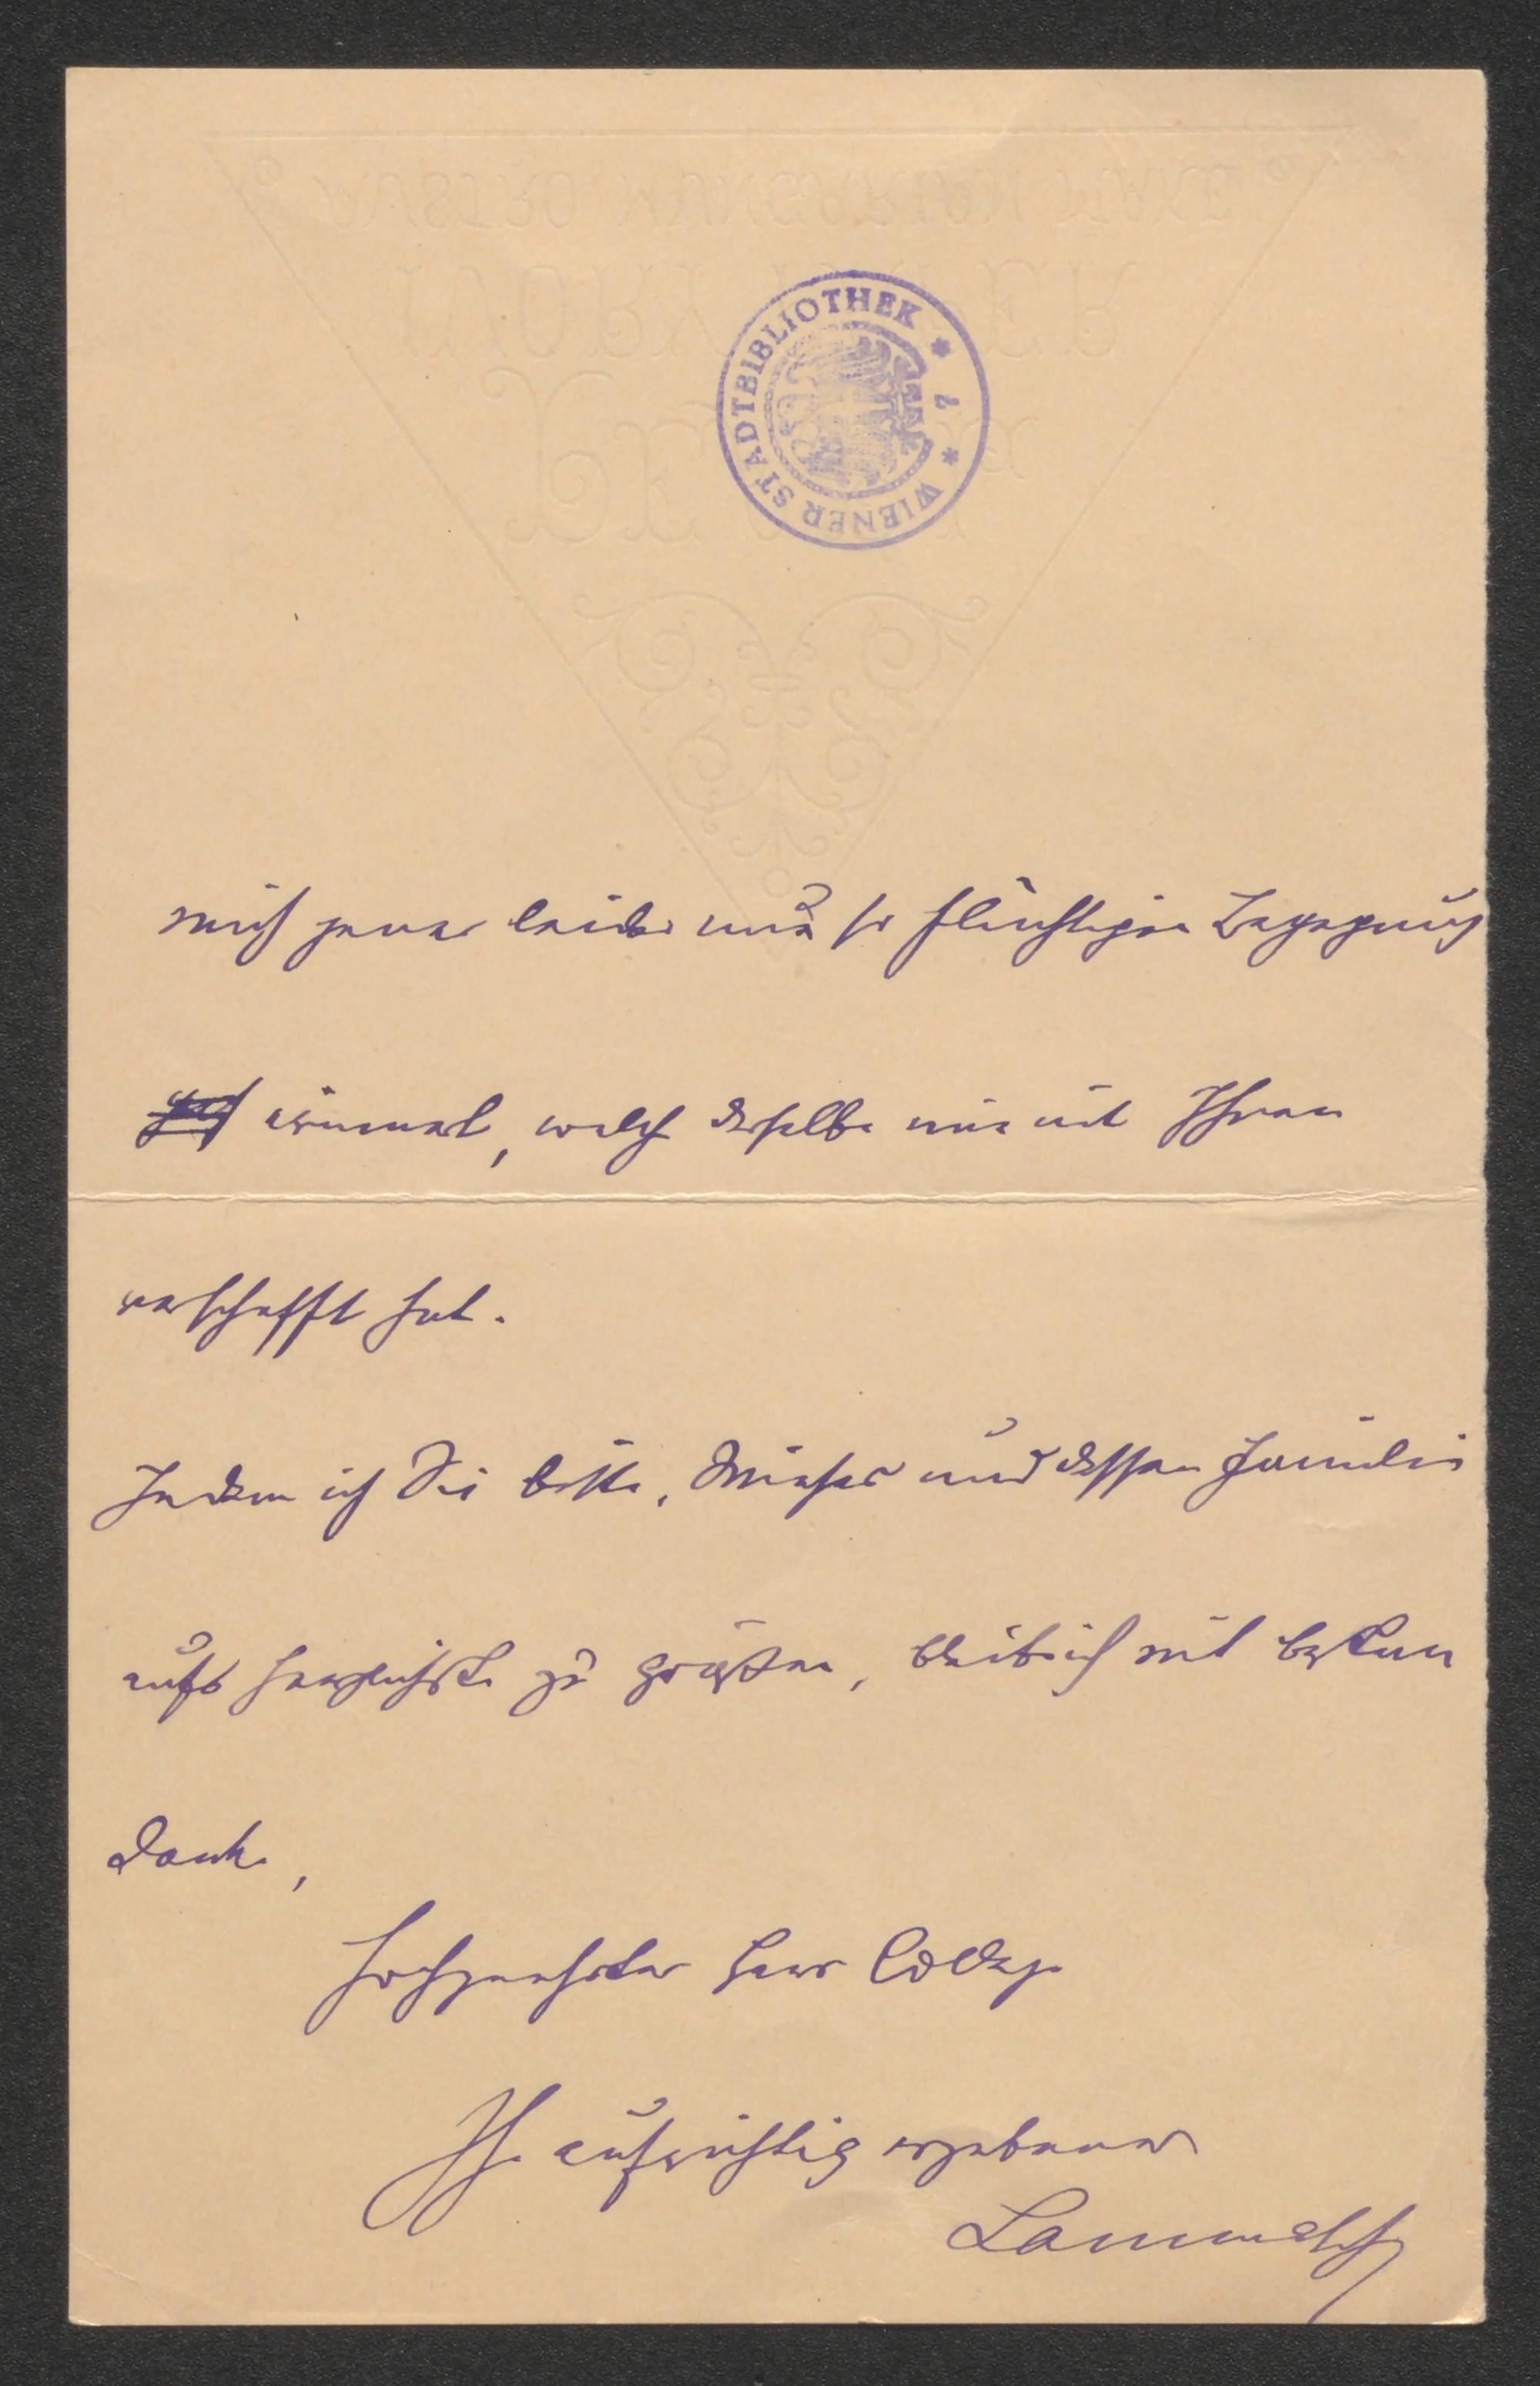 WIENER STADTBIBLIOTHEK * 7 *
mich jener leider nur so flüchtigen Begegnung
erinnert, welche derselbe mir mit Ihnen
verschafft hat.
Indem ich Sie bitte, und dessen Familie
aufs herzlichste zu grüßen, bleibe ich mit bestem
Danke,
hochgeehrter Herr College
Ihr aufrichtig ergebener
Lammasch